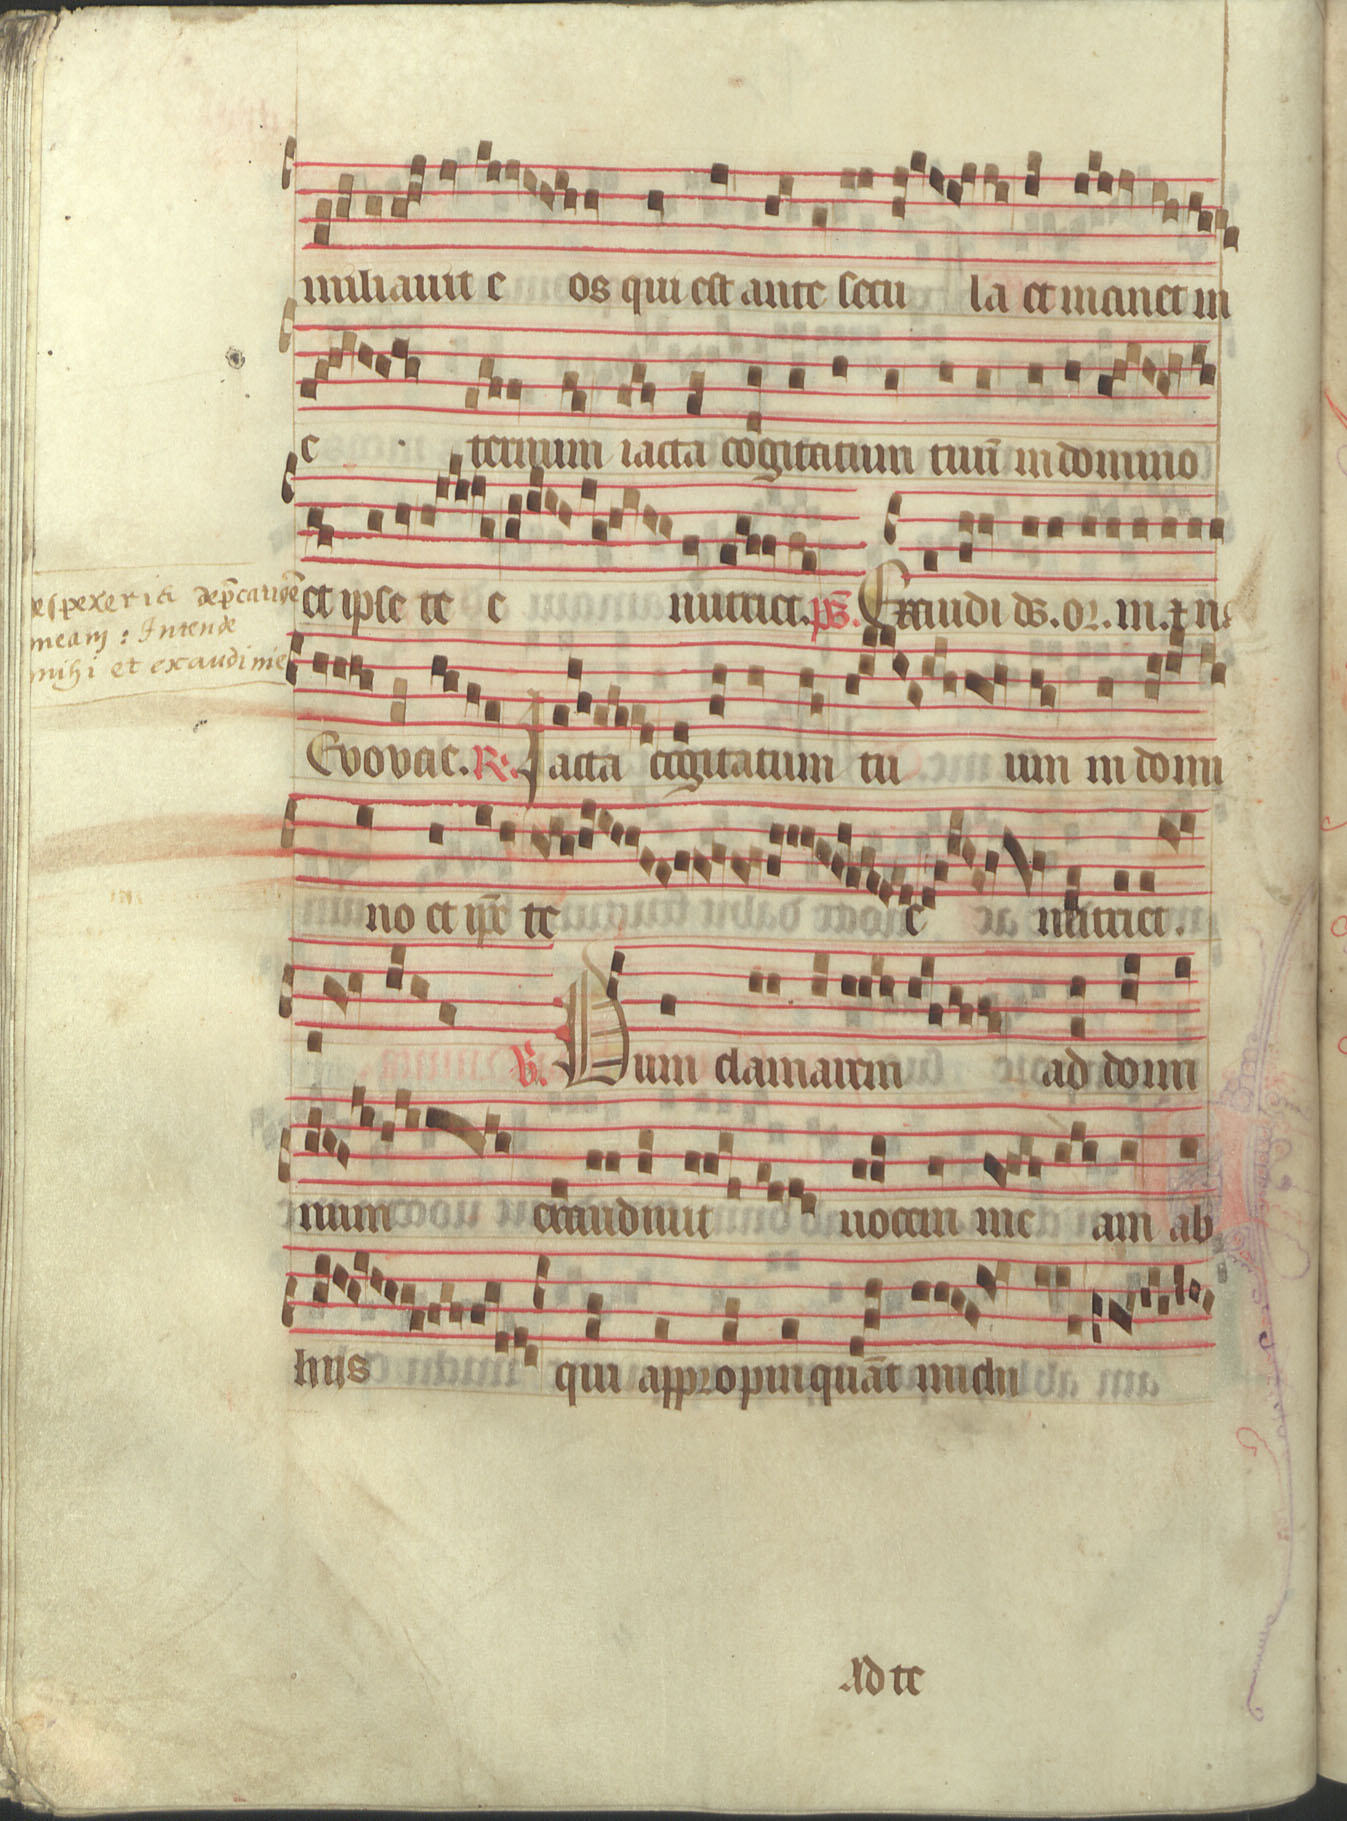 miliauit e os qui est ante secu la et manet in
e ternum iacta cogitatum tuū in domino
et ipse te e nutriet. ps. Exaudi ds. or. m. ⁊ ne
despexeris dep̄cationē
meam : Intende
mihi et exaudi me
Evovae. R. Iacta cogitatum tu um in domi
no et ip̄e te e nutriet.
V. Dum clamarem ad domi
num exaudiuit uocem me am ab
hijs qui appropinquāt michi
Ad te